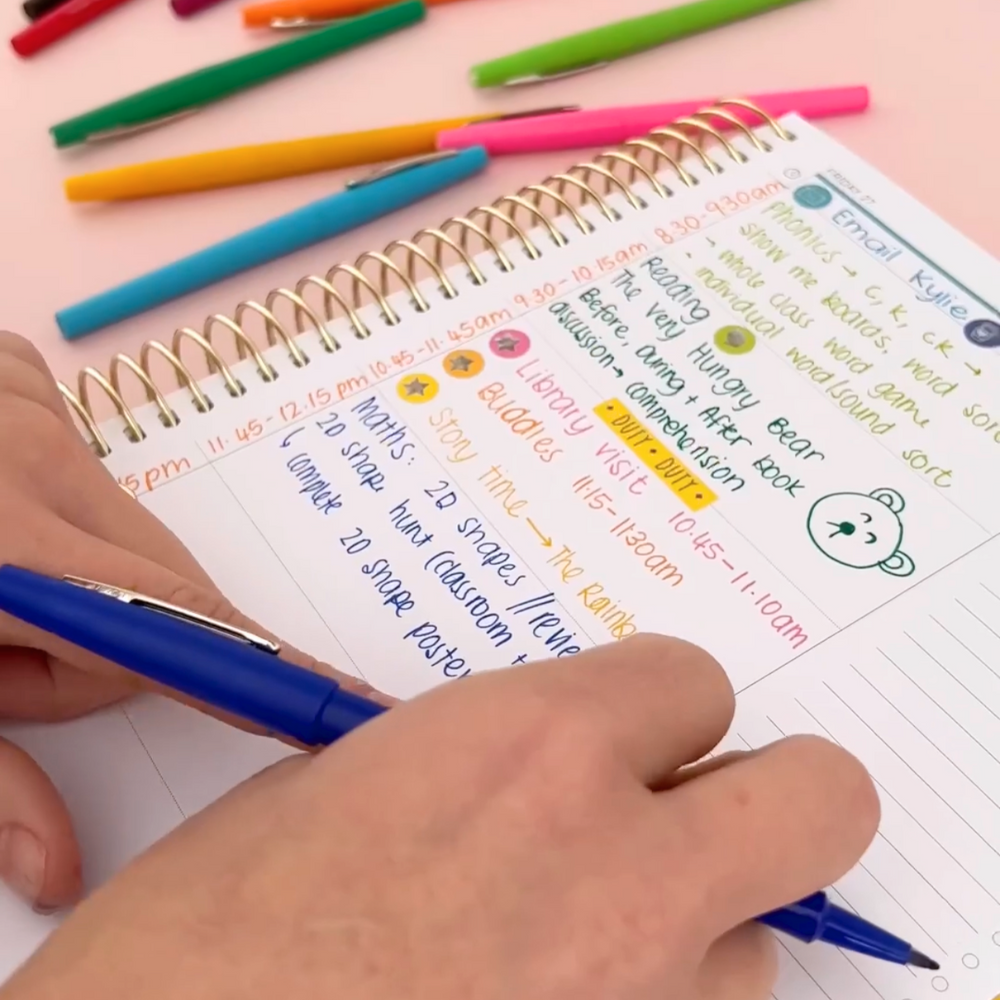 FRIDAY
Email Kylie
8.30-9.30am
Phonics → c, k, ck →
show me boards.
· whole class word game
· individual word/sound sort
9.30-10.15am
Reading
The Very Hungry Bear
Before, During + After book
discussion → comprehension
• DUTY • DUTY •
10.45-11.45am
Library visit 10.45-11.10am
Buddies 11:15-11:30am
Story time → The
11.45-12.15pm
Maths: 2D shapes
2D shape hunt (classroom +
complete 2D shape poster
15pm